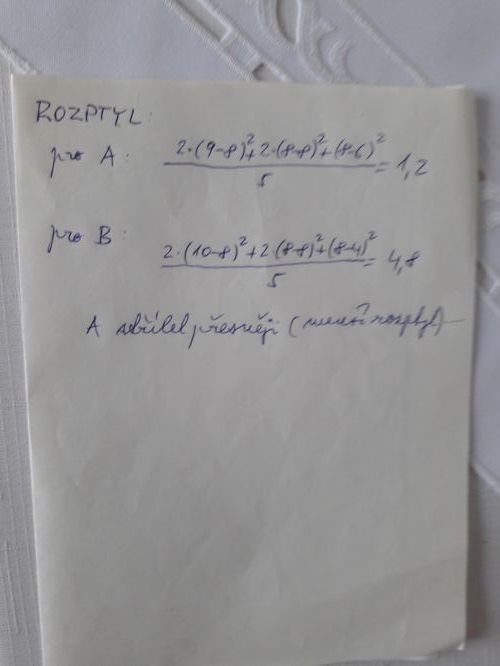 ROZPTYL:
pro A: (2·(9-8)²+2·(8-8)²+(8-6)²)/5 = 1,2
pro B: (2·(10-8)²+2·(8-8)²+(8-4)²)/5 = 4,8
A střílel přesněji (menší rozptyl)